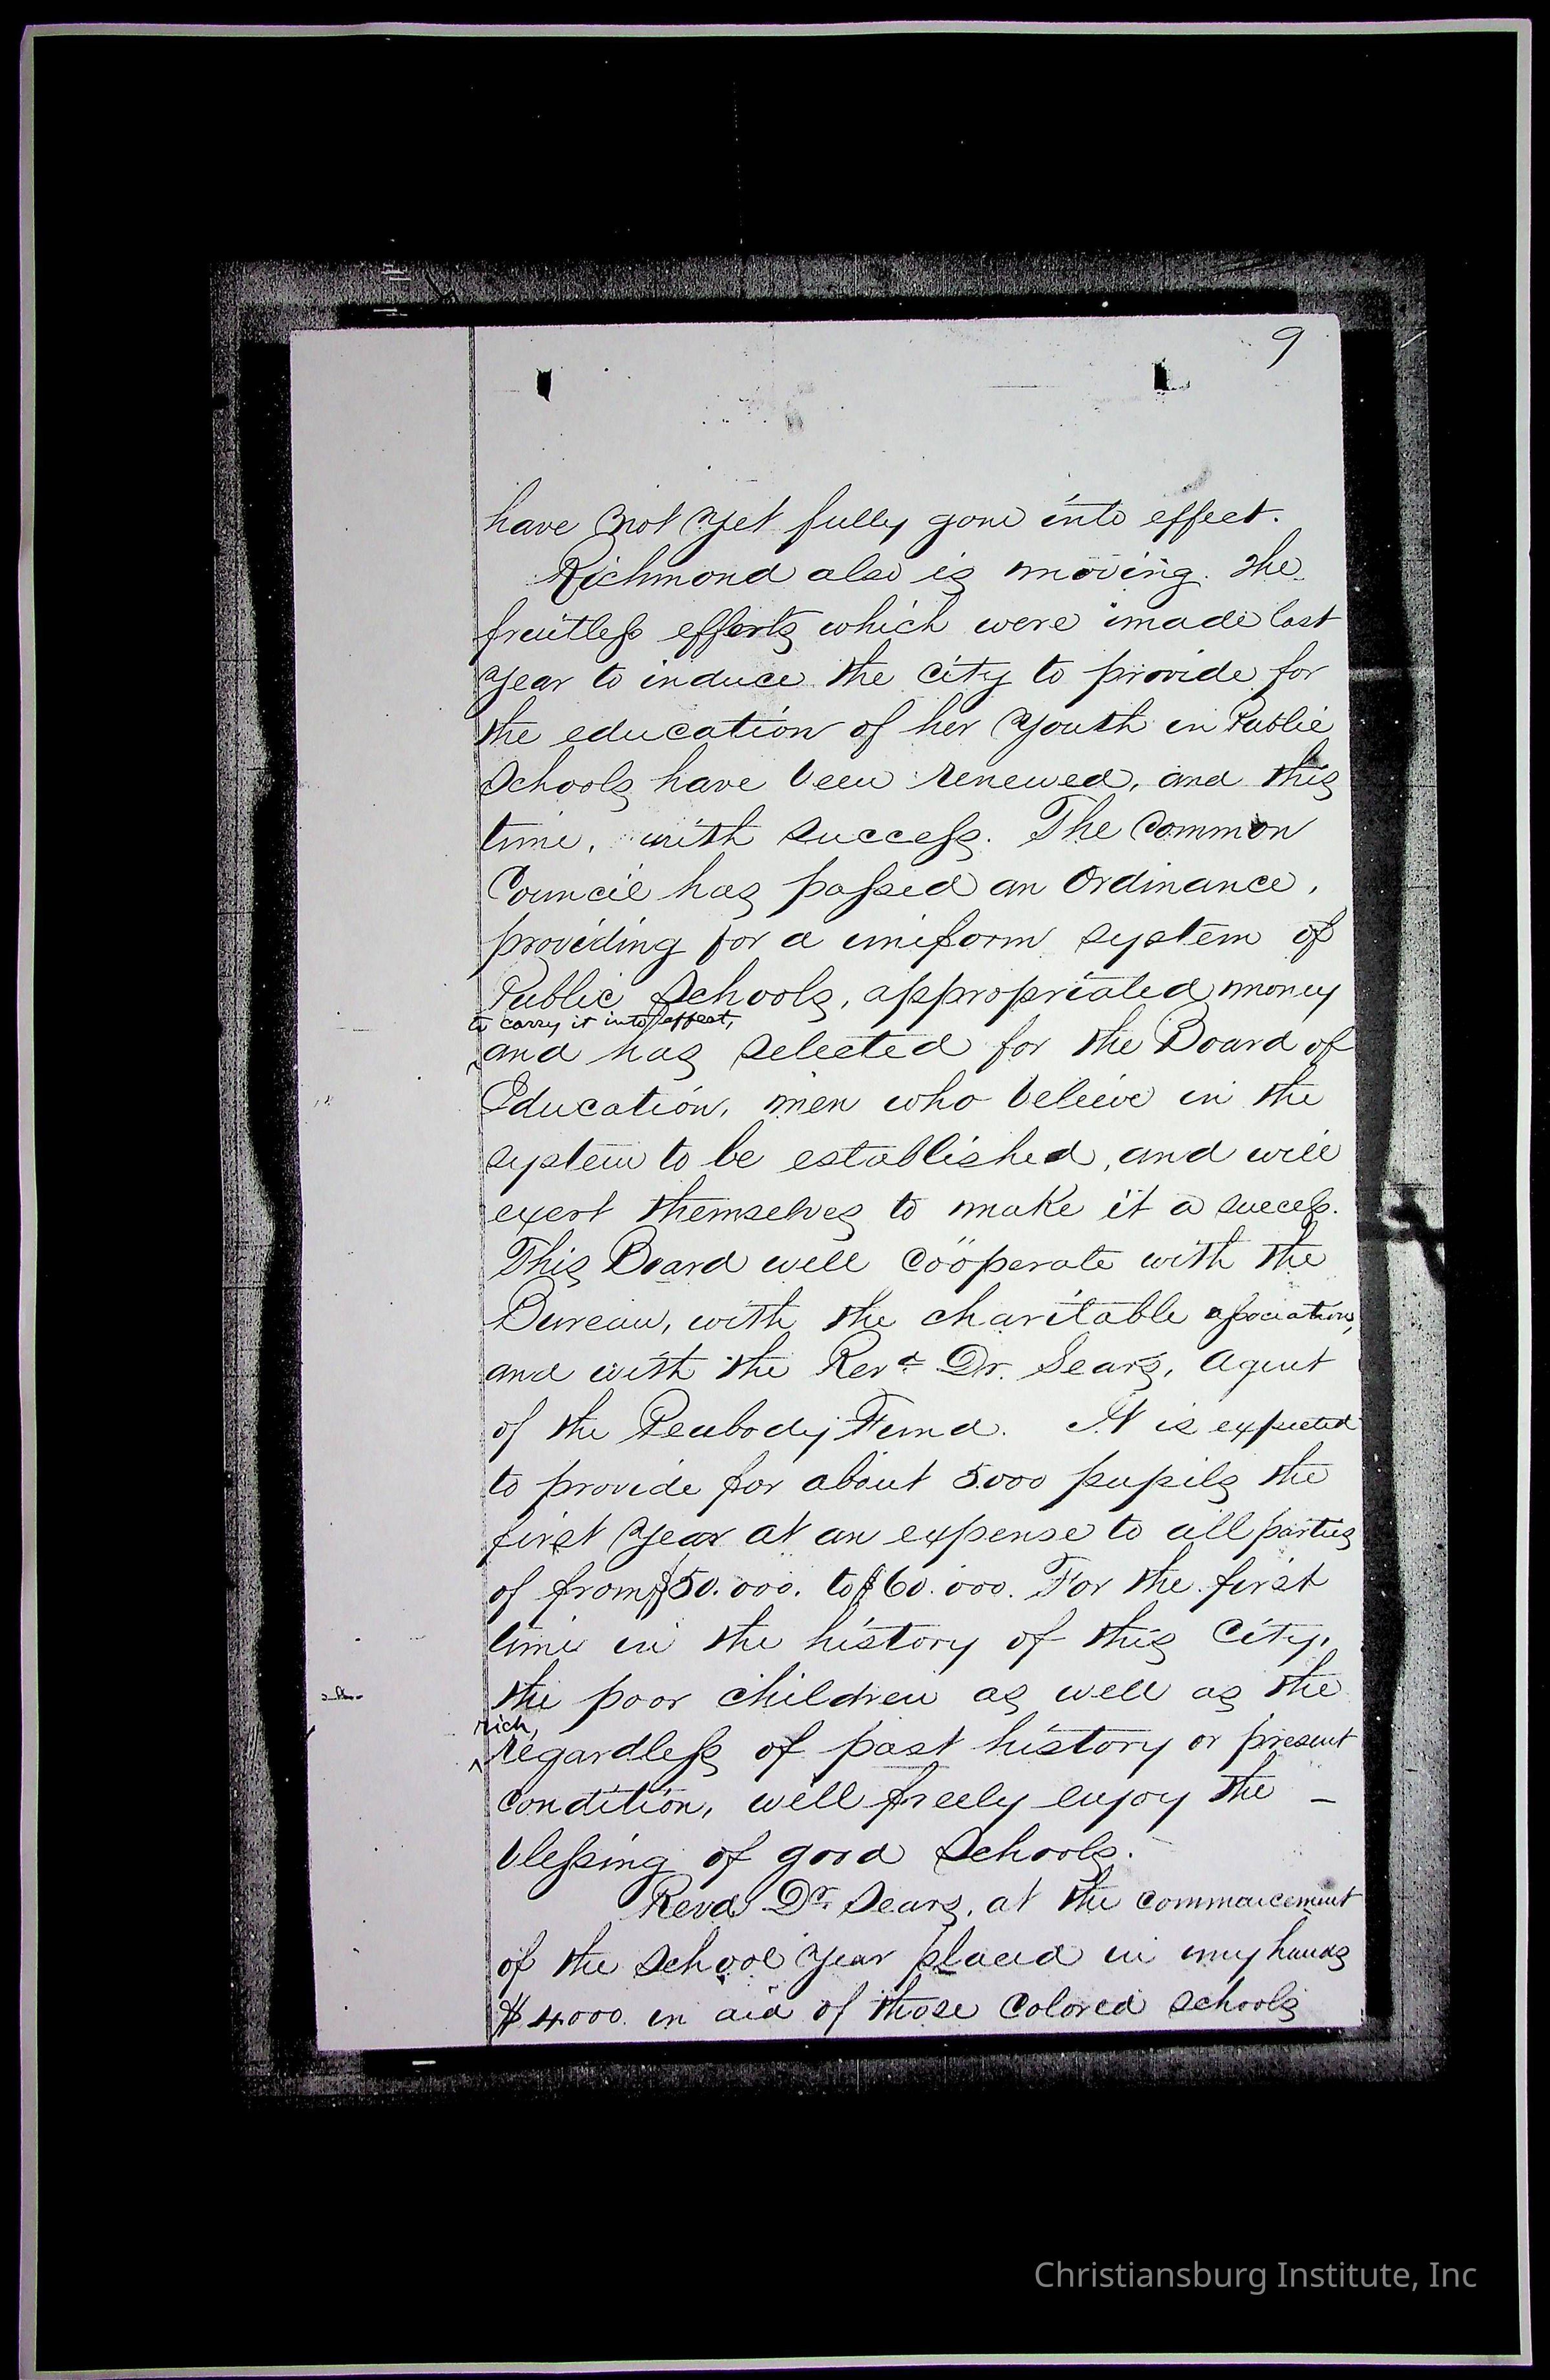 9
have not yet fully gone into effect.
Richmond also is moving. The
fruitless efforts which were made last
year to induce the city to provide for
the education of her youth in Public
Schools have been renewed, and this
time, with success. The Common
Council has passed an Ordinance,
providing for a uniform system of
Public Schools, appropriated money
to carry it into effect,
and has selected for the Board of
Education, men who believe in the
system to be established, and will
exert themselves to make it a success.
This Board will coöperate with the
Bureau, with the charitable associations,
and with the Revd Dr. Sears, Agent
of the Peabody Fund. It is expected
to provide for about 5000 pupils the
first year at an expense to all parties
of from $50.000. to $60.000. For the first
time in the history of this City,
the poor children as well as the
rich,
regardless of past history or present
condition, will freely enjoy the –
blessing of good Schools.
Revd Dr. Sears, at the commencement
of the School year placed in my hands
$4000. in aid of those Colored schools
Christiansburg Institute, Inc